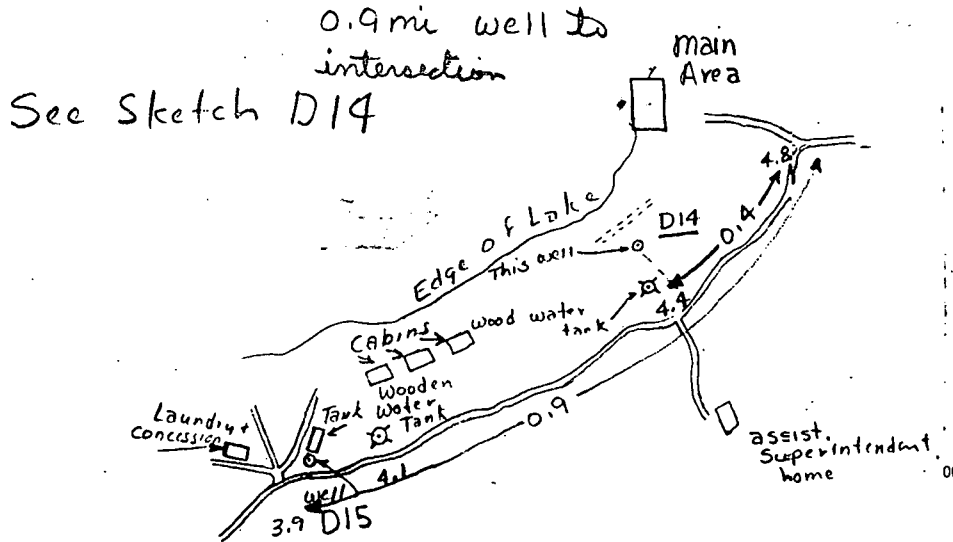 0.9 mi well to
intersection
See Sketch D14
Main
Area
4.8
Edge of Lake
D14
0.4
This well
4.4
wood water
tank
Cabins
Wooden
Water
Tank
Tank
0.9
Laundry +
concession
assist.
Superintendant
home
4.1
well
3.9 D15